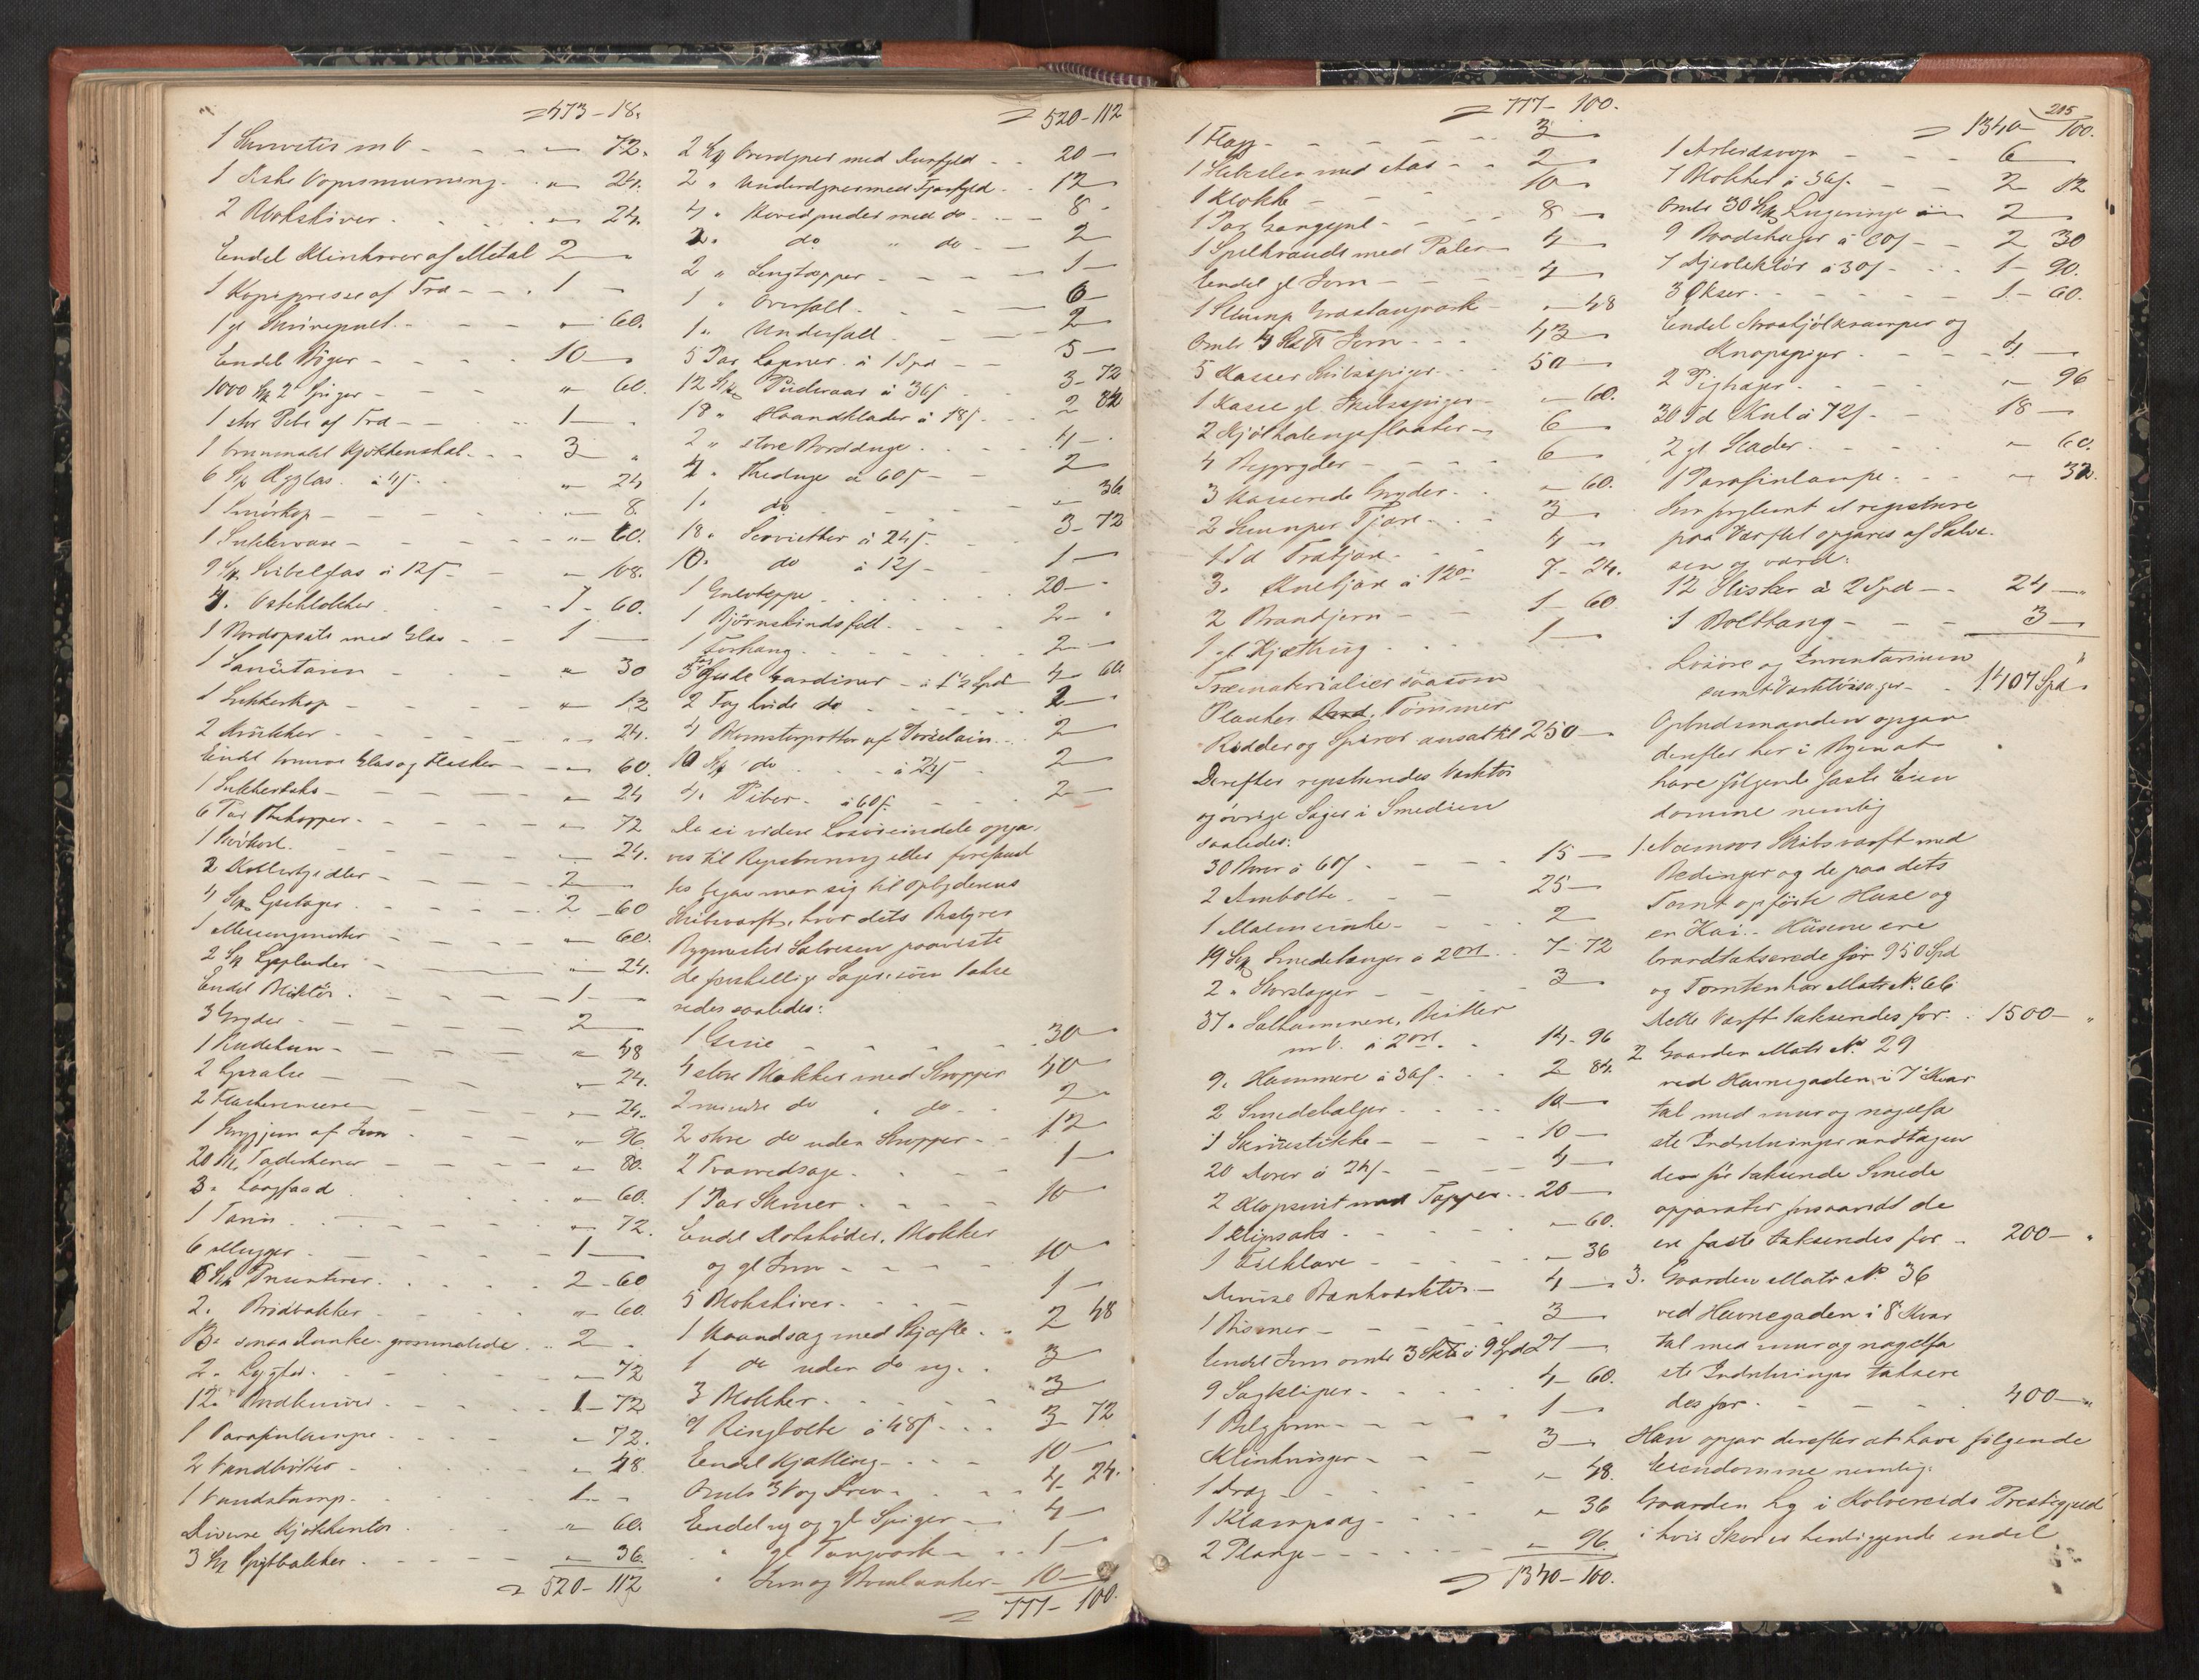 473 – 18.
1 Servietis m V – – – „ 72.
1 Æske Vognsmurning . . „ 24.
2 Blokskiver . . . „ 24.
Endel Klinkover af Metal 2 – „
1 Kopipresse af Træ – – . 1 –
1 gl Skrivepult . – – – „ 60.
Endel Bøger – – – – 10 –
1000 Stk 2" Spiger – – – „ 60.
1 stor Pibe af Træ – – . . 1 –
1 umalet Kjøkkenskab . – – 3 „
6 Stk Ølglas . à 4 s – – „ 24
1 Smørkop – – – – – „ 8.
1 Sukkervase – – – – „ 60.
9 Stk Svibelglas à 12 s – – 108.
4 „ Osteklokker . . . – 1 – 60.
1 Bordopsats med Glas – – 1 –
1 – – – – „ 30
1 Sukkerkop – – – – „ 12
2 Krukker – – – – „ 24.
Endel tomme Glas og Flasker – – „ 60.
1 Sukkersaks – – – – „ 24
6 Par Thekopper – – – – „ 72
1 Brødkurv . – – – – „ 24.
2 Kobberkjedler – – – – 2 –
4 Stk Lysestager – – – 2 – 60
1 Messingmorter – – – „ 60.
2 Stk – – – „ 24.
Endel Bliktøi . – – – – 1 –
3 Gryder – – – – 2 –
1 – – – – „ 48
2 – – – – „ 24.
2 – – – – „ 24.
1 af Jern . – – – „ 96
20 Stk Tallerkener – – – „ 80.
3 „ Langfad . – – – „ 60.
1 – – – – „ 72.
6 Mugger . – – – – 1 –
5 Stk Presenterer . – – 2 – 60
2 „ Brødbakker . – – – „ 60.
13 „ smaa Dunke . . 2 –
2 „ Lygter . – – – – „ 72
12 „ Bordkniver – – – 1 – 72
1 Parafinlampe . – – – „ 72.
2 Vandbøtter – – – – „ 48
1 Vandstamp . – – – 1 –
Diverse Kjøkkentøi . – – „ 60.
3 Stk Spytbakker . – – „ 36
520 – 112
520 – 112
2 Stk Overdyner med Dunfyld – . . 20 –
2 „ Underdyner med Fjærfyld . . 12 –
4 „ Hovedpuder med do – . . 8 –
2 „ do „ do – – 2 –
2 „ Sengtæpper – – – 1 –
1 „ Overfald . – – – 6 –
1 „ Underfald . – – – 2 –
5 Par Lagner . à 1 Spd – – 5 –
12 Stk Pudevaar à 36 s – 3 – 72
18 „ Haandklæder à 18 s – 2 84
2 „ store Bordduge . . . 4 –
4 „ Theduge à 60 s – 2
1 „ do – – – „ 36
18 „ Servietter à 24 s . – 3 – 72
10 „ do à 12 s – – 1 –
1 Gulvteppe . . . . 20 –
1 Bjørneskindsfeld . . . 2 –
1 Forhang . . . . 2 –
3 Fag Gule Gardiner – à 1½ Spd 4 – 60
2 Fag hvide do . . . . 2 –
4 Blomsterpotter af Porcelain . . 2 –
10 Stk do – . – à 24 s 2 –
4 „ Piber . à 60 s – – – 2 –
Da ei videre Løsøreiendele opga-
ves til Registrering eller forefand-
tes begav man sig til opbyderens
Skibsværft, hvor dets Bestyrer
Bygmester Salvesen paaviste
de forskjellige Sager, som takse-
redes saaledes:
1 Gine – – – – 30 –
4 store Blokker med Stropper 40 –
2 mindre do „ do – . 2 –
2 store do uden Stropper – . 12 –
2 Tværvedsage . – – – 1 –
1 Par Skruer . – – – 10 –
Endel Rokshoder, Blokker
og gl Jern – – – 10 –
5 Blokskiver . – – – 1 –
1 Haandsag med Skjæfte . . 2 48
1 do uden do ny . . 3 –
3 Blokker . – – – 3 –
9 Ringbolte à 48 s . . . 3 – 72
Endel Kjætting – . – – 10 –
Omtr 3 Vog Drev – . . 4 – 24.
Endel ny og gl Spiger – . 4 –
„ gl Tougværk – – . 1 –
„ Jern og Bomlænker – 10 –
777 – 100.
777 – 100.
1 Flag – – – – 3 –
1 Slibesten med Aas – – 2 –
1 Klokke – – – – 10 –
1 Par Gangspil – – – 8 –
1 Spilkrands med Paler – 4 –
Endel gl Jern – – – 4 –
1 Stump Græstaugværk – „ 48
Omtr 4 Sk ℔ Jern – – . 43 –
5 Kasser Skibsspiger . . . 50 –
1 Kasse gl Skibsspiger – „ 60.
2 Kjølhalingsflaater – 6 –
4 Beggryder – – – – 6 –
3 Kasserede Gryder . . „ 60.
2 Stumper Tjære . – . 3 –
1 Td Trætjære . – – 4 –
3 „ Kultjære à 12 ort 7 – 24.
2 Brandjern – – . 1 – 60
1 gl Kjætting . . . . 1 –
Træmaterialier saasom
Planker Tømmer
Rødder og Spirer ansat til 250 –
Derefter registreredes Værktøi
og øvrige Sager i Smedien
saaledes:
30 Borer à 60 s – – – 15 –
2 Ambolte . – – 25 –
1 – – – 2 –
19 Stk Smedetænger à 2 ort . . 7 – 72
2 „ Storslægger – – – 3 –
37 „ Sælhammere, Meisler
m. V. à 2 ort . . 14 – 96
9 „ Hammere à 36 s . . 2 84.
2 Smedebælger . . . . 10 –
1 Skruestikke – – – 10 –
20 Borer à 24 s – – – 4 –
2 Klopsnit med Tapper . . 20 –
1 Klipsaks . – – – „ 60.
1 Filklove . – – – „ 36
Diverse Bænkværktøi – 4 –
1 Bismer – – – – 3 –
Endel Jern omtr 3 Sk℔ à 9 Spd 27 –
9 Sagklipper . – . . 4 – 60.
1 – – – – 1 –
Klinkringer – – – 3 –
1 Drag – – – – „ 48.
1 Klampsag – . . „ 36
2 Plange – – – – „ 96.
1340 – 100.
215
1340 – 100.
1 Arbeidsvogn – – – 6 –
7 Blokker à 36 s . – – 2 12
Omtr 30 Stk 2 –
9 Baadshager à 30 s – – 2 30
7 à 30 s – . . 1 – 90.
3 Økser . – – – – 1 – 60.
Endel og
Knapspiger . – – – 4 –
2 Pighager . – – – „ 96
30 Td Kul à 72 s . – 18 –
2 gl Slæder . – – – „ 60.
1 Parafinlampe . – – „ 32.
Som forglemt at registrere
paa Værftet opgaves af Salve-
sen og værd:
12 Klisker à 2 Spd – . 24 –
1 Bolttang – – – 3 –
Løsøre og Inventarium
samt Værktøissager – . 1407 Spd
Opbudsmanden opgav
derefter her i Byen at
have følgende faste Eien
domme nemlig
1. Namsos Skibsværft med
Bedinger og de paa dets
Tomt opførte Huse og
en Kai. – Husene ere
brandtakserede for 950 Spd
og Tomten har Matr No. 66
Dette Værft takseredes for . . 1500 – „
2. Gaarden Matr No. 29
ved Havnegaden i 7' Kvar
tal med mur og nagelfa
ste Indretninger undtagen
de før takserede Smede
apparater forsaavidt de
ere faste takseredes for – 200 – „
3. Gaarden Matr No 36
ved Havnegaden i 8' Kvar
tal med mur og nagelfa
ste Indretninger taksere
des for . – – – . 400 – „
Han opgav derefter at have følgende
Eiendomme nemlig:
Gaarden Lø i Kolvereids Prestegjeld
i hvis Skov er henliggende endel